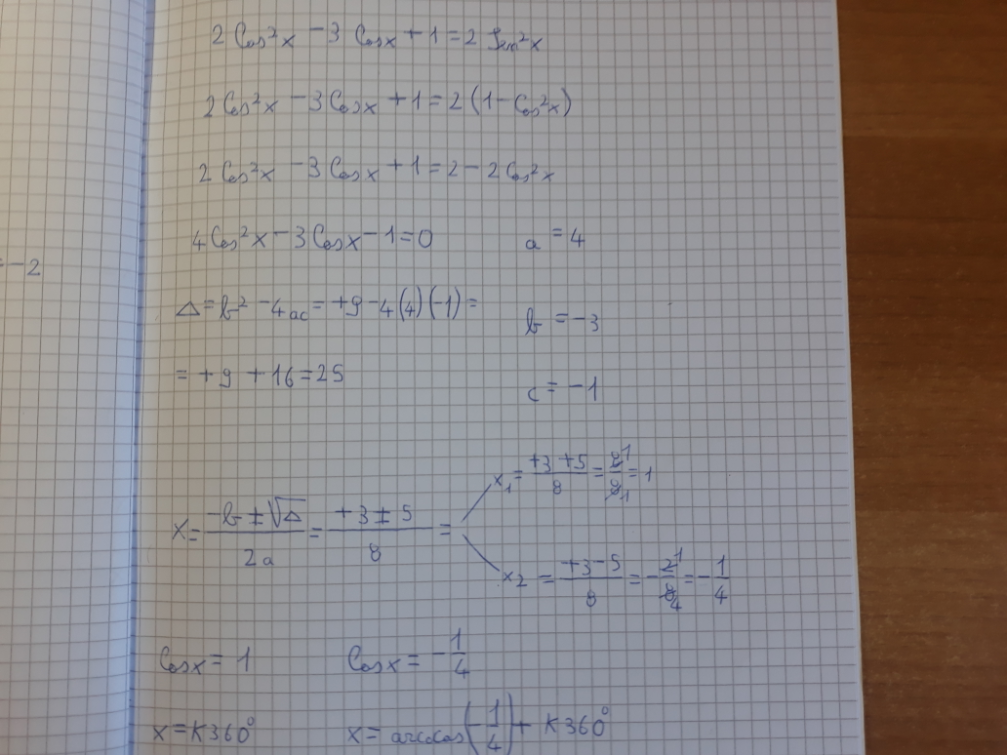 2 Cos²x - 3 Cosx + 1 = 2 Sen²x
2 Cos²x - 3 Cosx + 1 = 2 (1 - Cos²x)
2 Cos²x - 3 Cosx + 1 = 2 - 2 Cos²x
4 Cos²x - 3 Cosx - 1 = 0    a = 4
= -2
Δ = b² - 4ac = +9 - 4(4)(-1) =    b = -3
= +9 + 16 = 25    c = -1
x₁ = (+3 + 5)/8 = 8/8 = 1/1 = 1
x = (-b ± √Δ)/2a = (+3 ± 5)/8 =
x₂ = (+3 - 5)/8 = -2/8 = -1/4
Cosx = 1    Cosx = -1/4
x = K360°    x = arccos(-1/4) + K360°